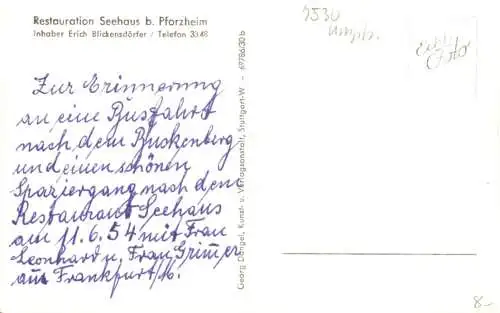 Restauration Seehaus b. Pforzheim
Inhaber Erich Blickensdörfer / Telefon 3348
Zur Erinnerung
an eine Busfahrt
nach dem Buckenberg
und einen schönen
Spaziergang nach dem
Restaurant Seehaus
am 11.6.54 mit Frau
Leonhard u. Frau Grimmer
aus Frankfurt/M.
Georg Dangel, Kunst- u. Verlagsanstalt, Stuttgart-W - 69786/30 b
7530
Echt
Foto
8-